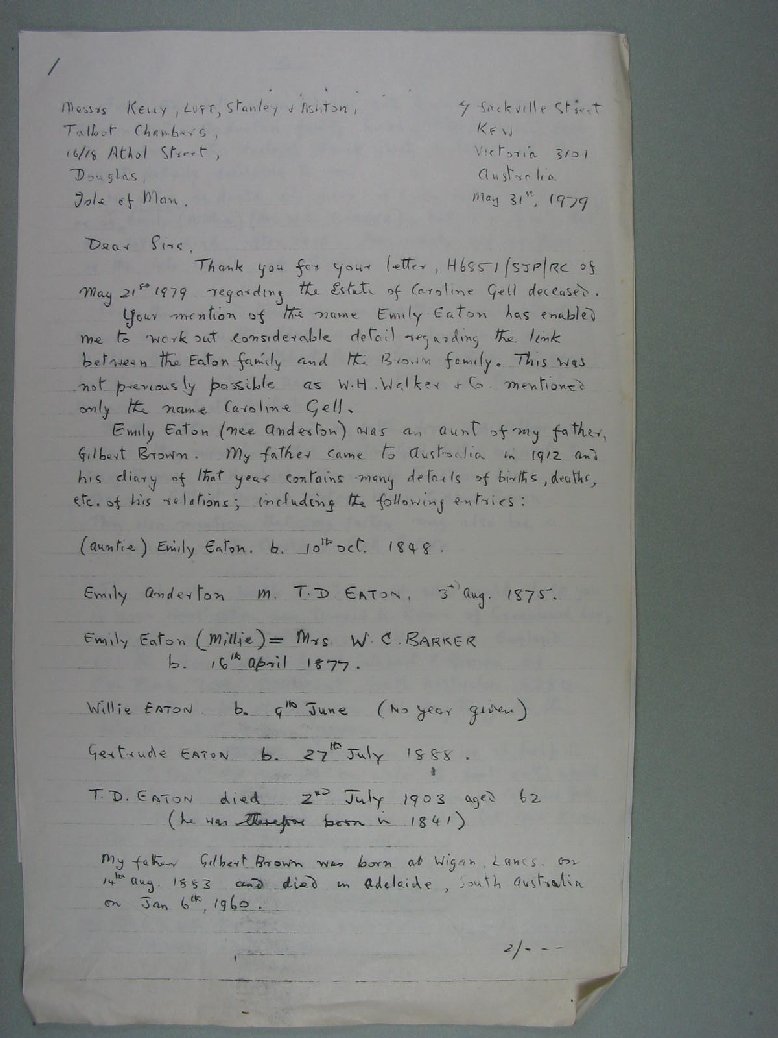 1
Messrs Kelly, Luft, Stanley & Ashton,
Talbot Chambers,
16/18 Athol Street,
Douglas,
Isle of Man.
4 Sackville Street
Kew
Victoria 3101
Australia
May 31st, 1979
Dear Sirs,
Thank you for your letter, H6551/SJP/RC of
May 21st 1979 regarding the Estate of Caroline Gell deceased.
Your mention of the name Emily Eaton has enabled
me to work out considerable detail regarding the link
between the Eaton family and the Brown family. This was
not previously possible as W.H. Walker & Co. mentioned
only the name Caroline Gell.
Emily Eaton (nee Anderton) was an aunt of my father,
Gilbert Brown. My father came to Australia in 1912 and
his diary of that year contains many details of births, deaths,
etc. of his relations; including the following entries:
(auntie) Emily Eaton. b. 10th Oct. 1848.
Emily Anderton m. T.D EATON, 3rd Aug. 1875.
Emily Eaton (Millie) = Mrs W.C. BARKER
b. 16th April 1877.
Willie EATON b. 9th June (No year given)
Gertrude EATON b. 27th July 1888.
T.D. EATON died 2nd July 1903 aged 62
(he was therefore born in 1841)
My father Gilbert Brown was born at Wigan, Lancs. on
14th Aug. 1883 and died in Adelaide, South Australia
on Jan 6th, 1960.
2/---